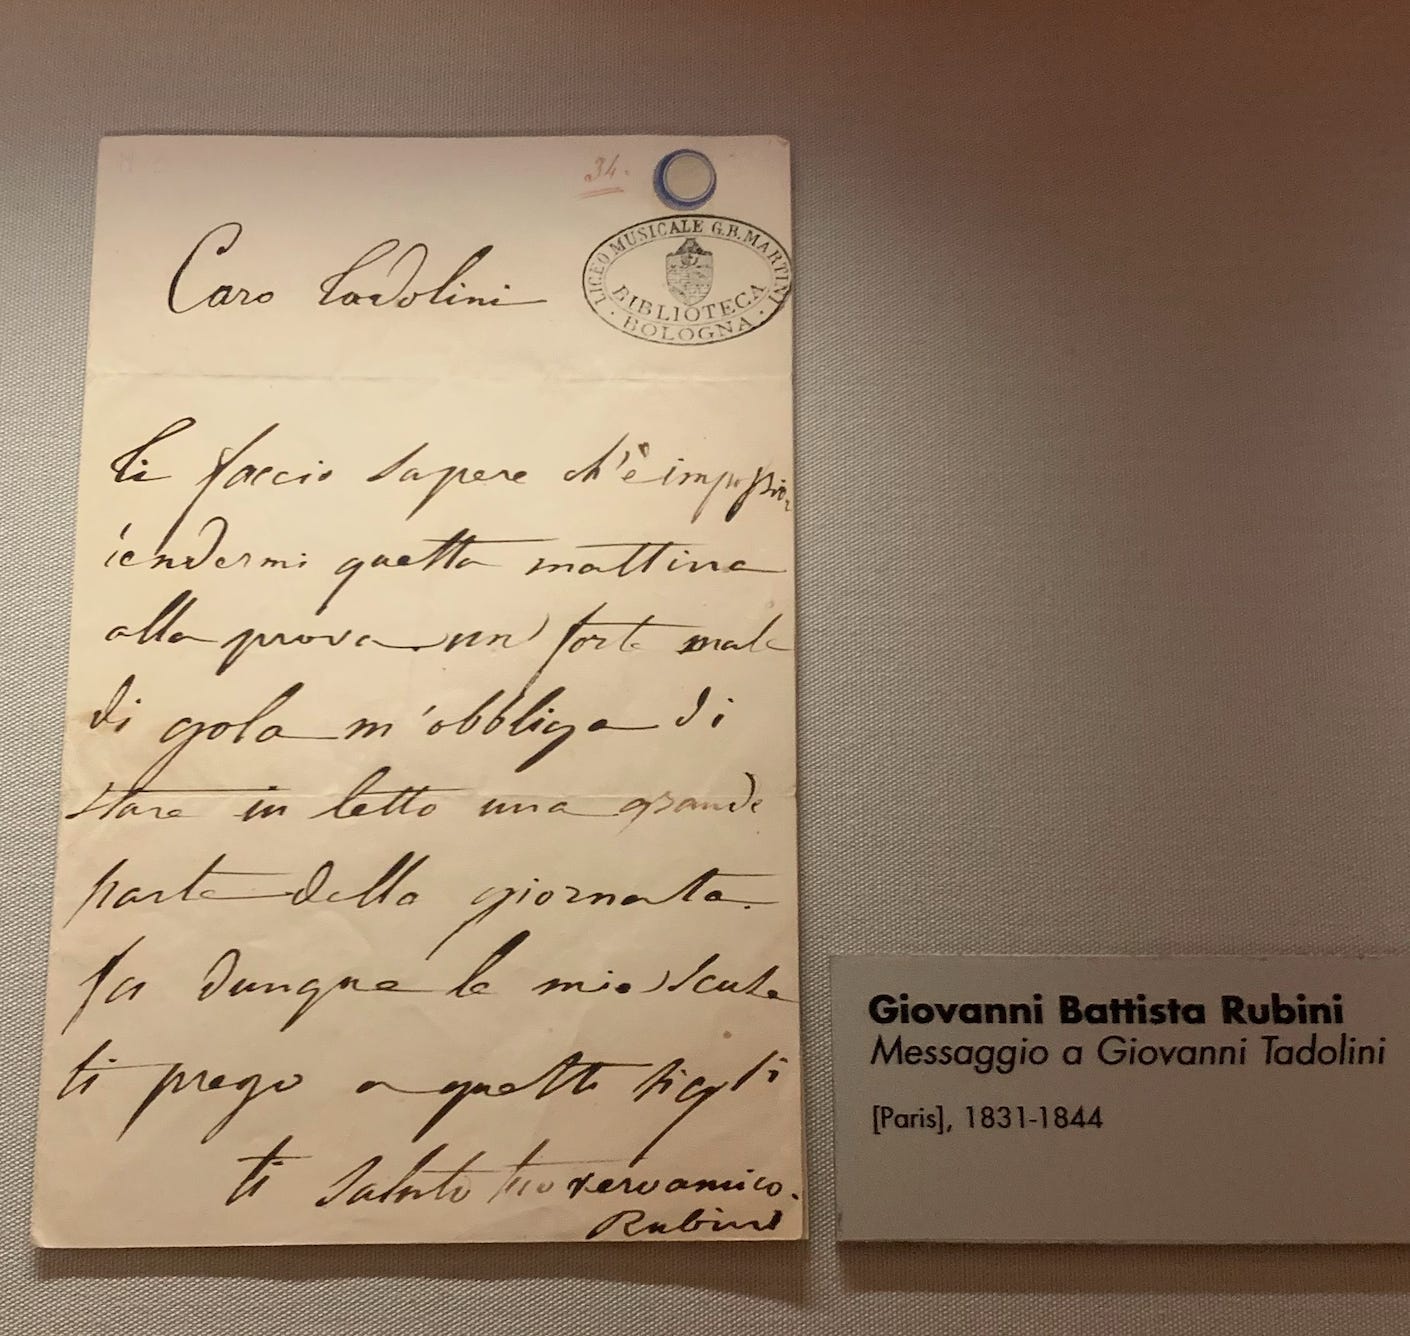 34.
LICEO MUSICALE G.B. MARTINI
BIBLIOTECA
· BOLOGNA ·
Caro Tadolini
Ti faccio sapere ch'è
rendermi questa mattina
alla prova un forte male
di gola m'obbliga di
stare in letto una grande
parte della giornata.
fa dunque le mie scuse
ti prego a questi
ti saluto tuo vero amico.
Rubini
Giovanni Battista Rubini
Messaggio a Giovanni Tadolini
[Paris], 1831-1844